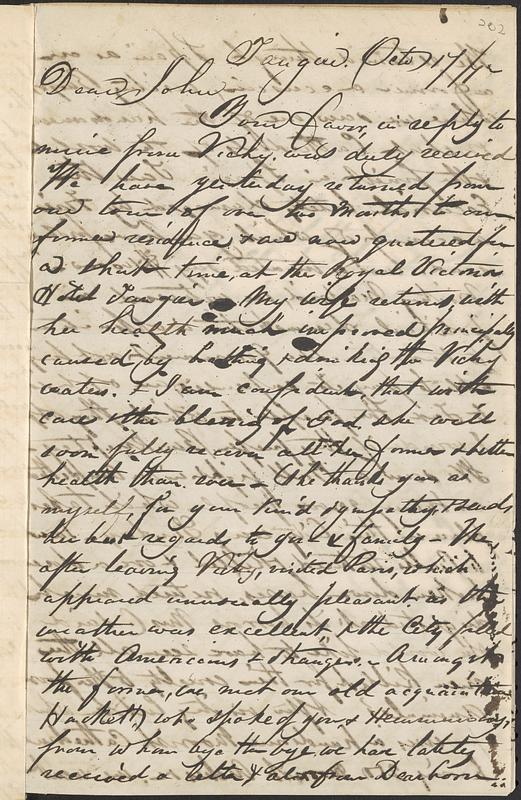 202
Tangier. Octo 17/
Dear John
Your favor, in reply to
mine from Vichy was duly received
We have yesterday returned from
our tour of over two Months to our
former residence & are now quartered for
a short time, at the Royal Victoria
Hotel Tangier. My wife returns with
her health much improved principally
caused by bathing & drinking the Vichy
waters. & I am confident, that with
care & the blessing of God she will
soon fully recover all her former & better
health than ever. She thanks you as
myself, for your kind sympathy & sends
her best regards to you & family - We
after leaving Vichy, visited Paris, which
appeared unusually pleasant as the
weather was excellent & the City filled
with Americans & strangers. Amongst
the former, we met our old acquaintance
Hackett, who spoke of you &
from whom bye the bye we have lately
received a letter & also from Dearborn.